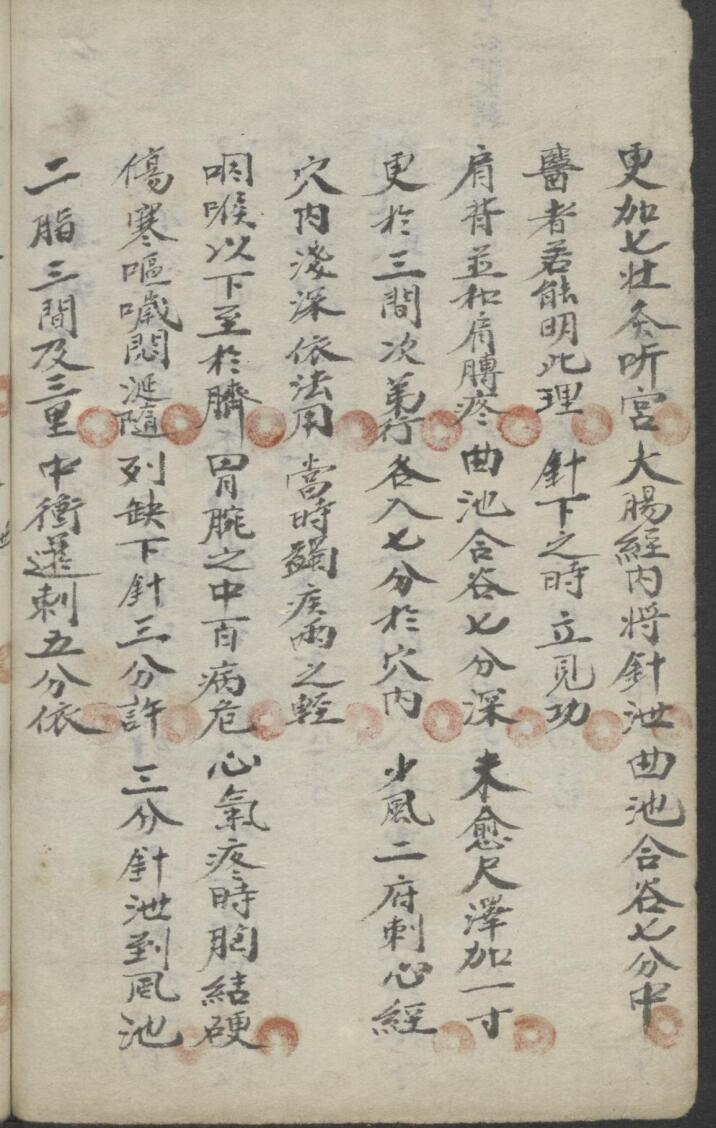 更加七壯灸听宫　大腸經内将針泄　曲池合谷七分中
醫者若能明此理　針下之時立見功
肩背並和肩膊疼　曲池合谷七分深　未愈尺澤加一寸
更於三間次弟行　各入七分於穴内　少風二府刺心經
穴内淺深依法用　當時蠲疾兩之輕
咽喉以下至於臍　胃脘之中百病危　心氣疼時胸結硬
傷寒嘔噦悶涎隨　列缺下針三分許　三分針泄到風池
二脂三間及三里　中衝還刺五分依